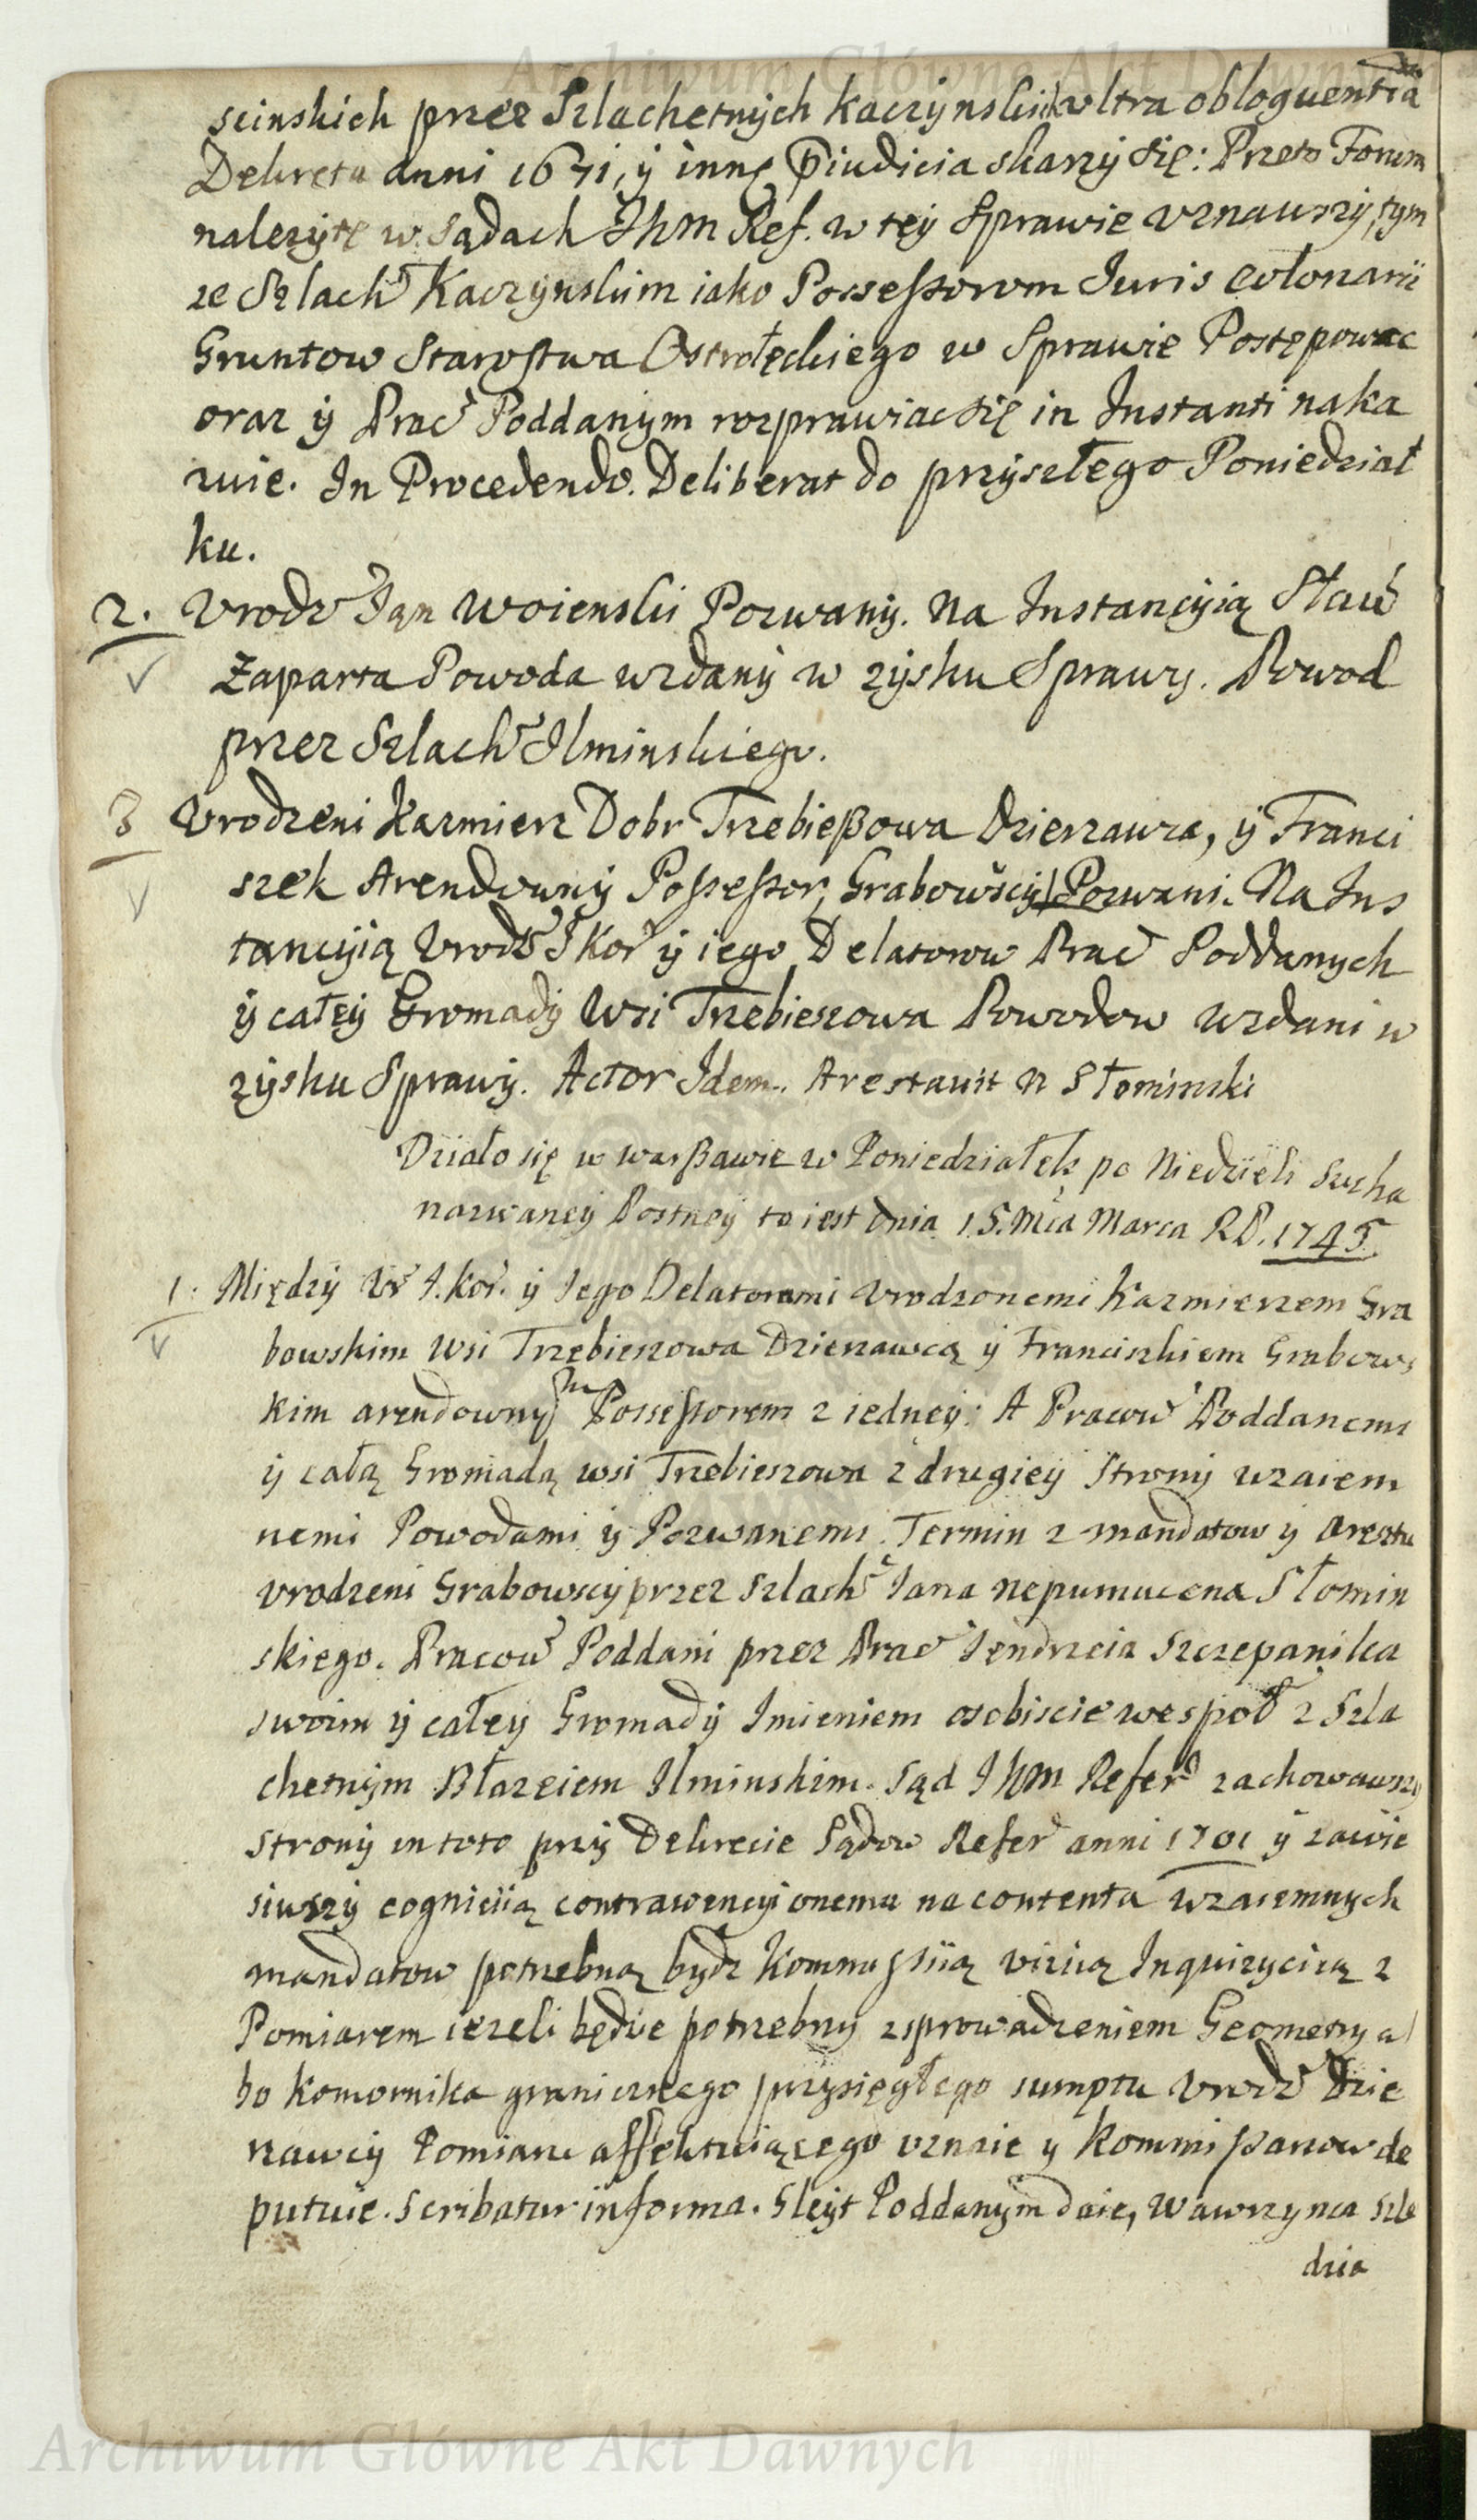 scinskich przez Szlachetnych Kaczynskich ultra obloquentia
Dekreta anni 1671, y inne p̄iudicia skarzy się: Przeto Forum
nalezyte w Sądach Jhm Ref. w tey Sprawie vznawszy, tym
ze Szlach Kaczynskim iako Possessorom Juris Colonarii
Gruntow Starostwa Ostrołęckiego w Sprawie Postępowac
oraz ÿ Prac Poddanym rozprawiac się in Instanti naka
zuie. In Procedendo. Deliberat do przyszłego Poniedział
ku.
2. Vrodz Jan Woienski Pozwany. Na Instancyią Sław
Zaparta Powoda wzdany w zysku Sprawy. Powod
przez Szlach Ilminskiego.
3 Vrodzeni Kazmierz Dobr Trzebießowa Dzierzawca, ÿ Franci
szek Arendowny Possessor Grabowscy Pozwani. Na Ins
tancyią Vrodz J Kor ÿ iego Delatorow Prac Poddanych
ÿ całey Gromady Wsi Trzebieszowa Powodow wzdani w
zysku Sprawy. Actor Idem. Arestavit N Słominski
Działo się w warßawie w Poniedziałek po Niedzieli Sucha
nazwaney Postney to iest dnia 15. Mca Marca RP. 1745.
1. Między Vr J. Kor. ÿ Jego Delatorami Vrodzonemi Kazmierzem Gra
bowskim Wsi Trzebieszowa Dzierzawcą ÿ Franciszkiem Grabows
kim arendownym Possessorem z iedney: A Pracow Poddanemi
ÿ całą Gromadą wsi Trzebieszowa z drugiey Strony wzaiem
nemi Powodami ÿ Pozwanemi. Termin z mandatow ÿ aresztu
vrodzeni Grabowscy przez Szlach Jana Nepumucena Słomin
skiego. Pracow Poddani przez Prac Jendrzeia Szczepanika
swoim ÿ całey Gromady Imieniem osobiscie wespoł z Szla
chetnym Błazeiem Ilminskim. Sąd Jhm Refer zachowawszy
strony in toto przy Dekrecie Sądow Refer anni 1701 ÿ zawie
siwszy cogniciią contrawencyi onemu na contenta wzaiemnych
mandatow potrzebną bydz Kommissiią viziią Inquizyciią z
Pomiarem iezeli będzie potrzebny zsprowadzeniem Geometry al
bo Komornika granicznego przysięgłego sumptu Vrodz Dzie
rzawcy Pomiaru affektuiącego vznaie y Kommissarzow de
putuie. Scribatur in forma. Gleyt Poddanym daie, Wawrzynca Szle
dzia